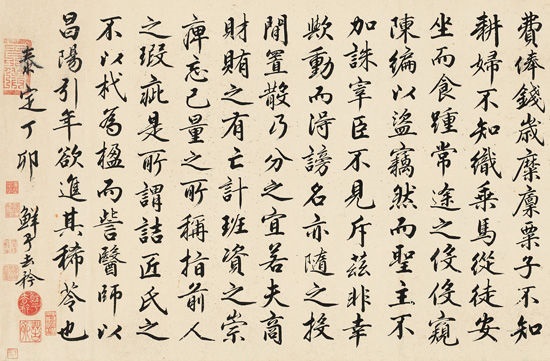 費俸錢歲糜廩粟子不知
耕婦不知織乗馬從徒安
坐而食踵常途之役役窺
陳編以盜竊然而聖主不
加誅宰臣不見斥茲非幸
歟動而得謗名亦隨之投
閒置散乃分之宜若夫商
財賄之有亡計班資之崇
庳忘己量之所稱指前人
之瑕疵是所謂詰匠氏之
不以杙為楹而訾醫師以
昌陽引年欲進其稀苓也
泰定丁卯 鮮于去矜